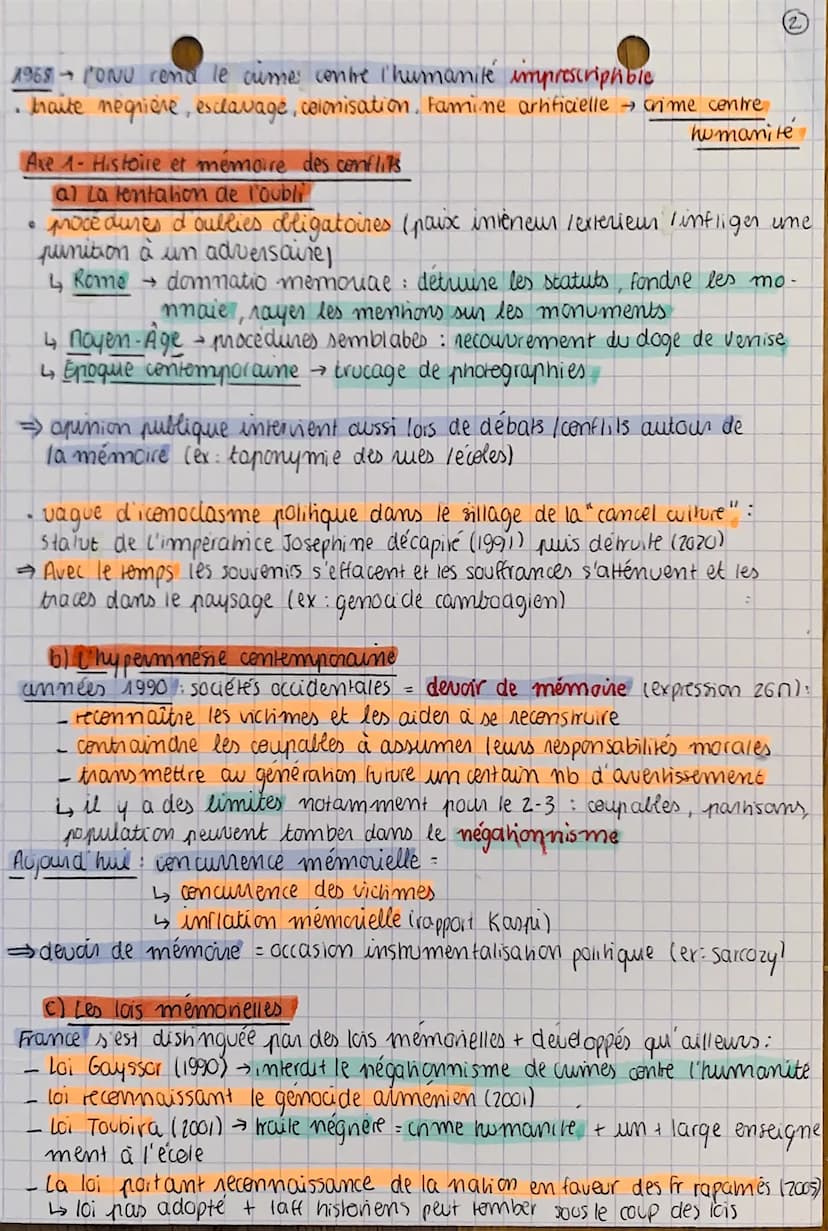 2
1968 → l'ONU rend le crime contre l'humanité imprescriptible
. traite négrière, esclavage, colonisation, Famine artificielle → crime contre
humanité
Axe 1 - Histoire et mémoire des conflits
a) La tentation de l'oubli
• procédures d'oublies obligatoires (paix intérieur / extérieur / infliger une
punition à un adversaire)
↳ Rome → domnatio memoriae : détruire les statuts, fondre les mo-
nnaie, rayer les mentions sur les monuments
↳ Moyen-Âge → procédures semblabes : recouvrement du doge de Venise
↳ Époque contemporaine → trucage de photographies
⇒ opinion publique intervient aussi lors de débats / conflits autour de
la mémoire (ex : toponymie des rues / écoles)
. vague d'iconoclasme politique dans le sillage de la "cancel culture" :
statut de l'impératrice Josephine décapité (1991) puis détruite (2020)
⇒ Avec le temps les souvenirs s'effacent et les souffrances s'atténuent et les
traces dans le paysage (ex : genocide cambodgien)
b) L'hypermnésie contemporaine
années 1990 : sociétés occidentales = devoir de mémoire (expression 2GM) :
- reconnaître les victimes et les aider à se reconstruire
- contraindre les coupables à assumer leurs responsabilités morales
- transmettre au génération future un certain nb d'avertissement
↳ il y a des limites notamment pour le 2-3 : coupables, partisans,
population peuvent tomber dans le négationnisme
Aujourd'hui : concurrence mémorielle =
↳ concurrence des victimes
↳ inflation mémorielle (rapport Kaspi)
⇒ devoir de mémoire = occasion instrumentalisation politique (ex : sarcozy)
c) Les lois mémorielles
France s'est distinguée par des lois mémorielles + développés qu'ailleurs :
- Loi Gayssot (1990) → interdit le négationnisme de crimes contre l'humanité
- loi reconnaissant le génocide arménien (2001)
- Loi Toubira (2001) → traite négrière = crime humanité + un + large enseigne
ment à l'école
- La loi portant reconnaissance de la nation en faveur des fr rapatriés (2005)
↳ loi pas adopté + historiens peut tomber sous le coup des lois